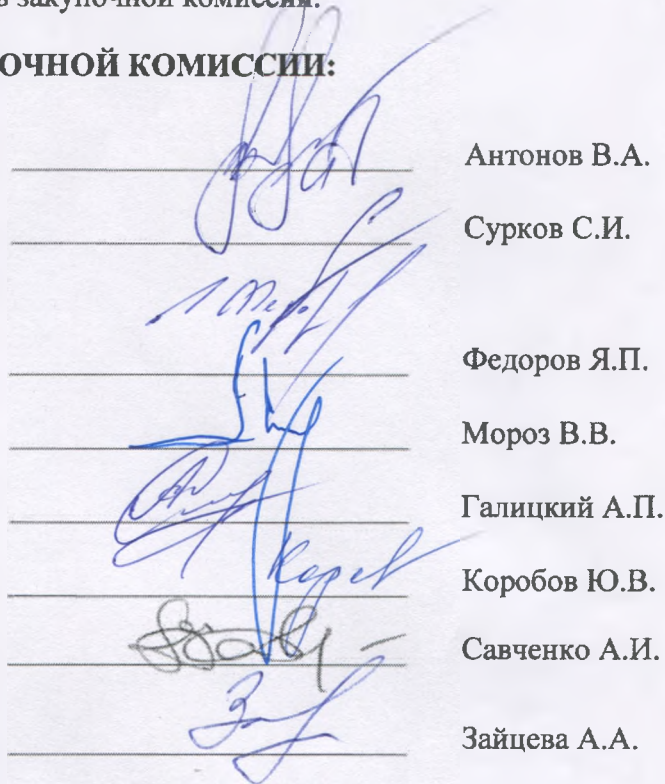 закупочной комиссия.
ОЧНОЙ КОМИССИИ:
Антонов В.А.
Сурков С.И.
Федоров Я.П.
Мороз В.В.
Галицкий А.П.
Коробов Ю.В.
Савченко А.И.
Зайцева А.А.